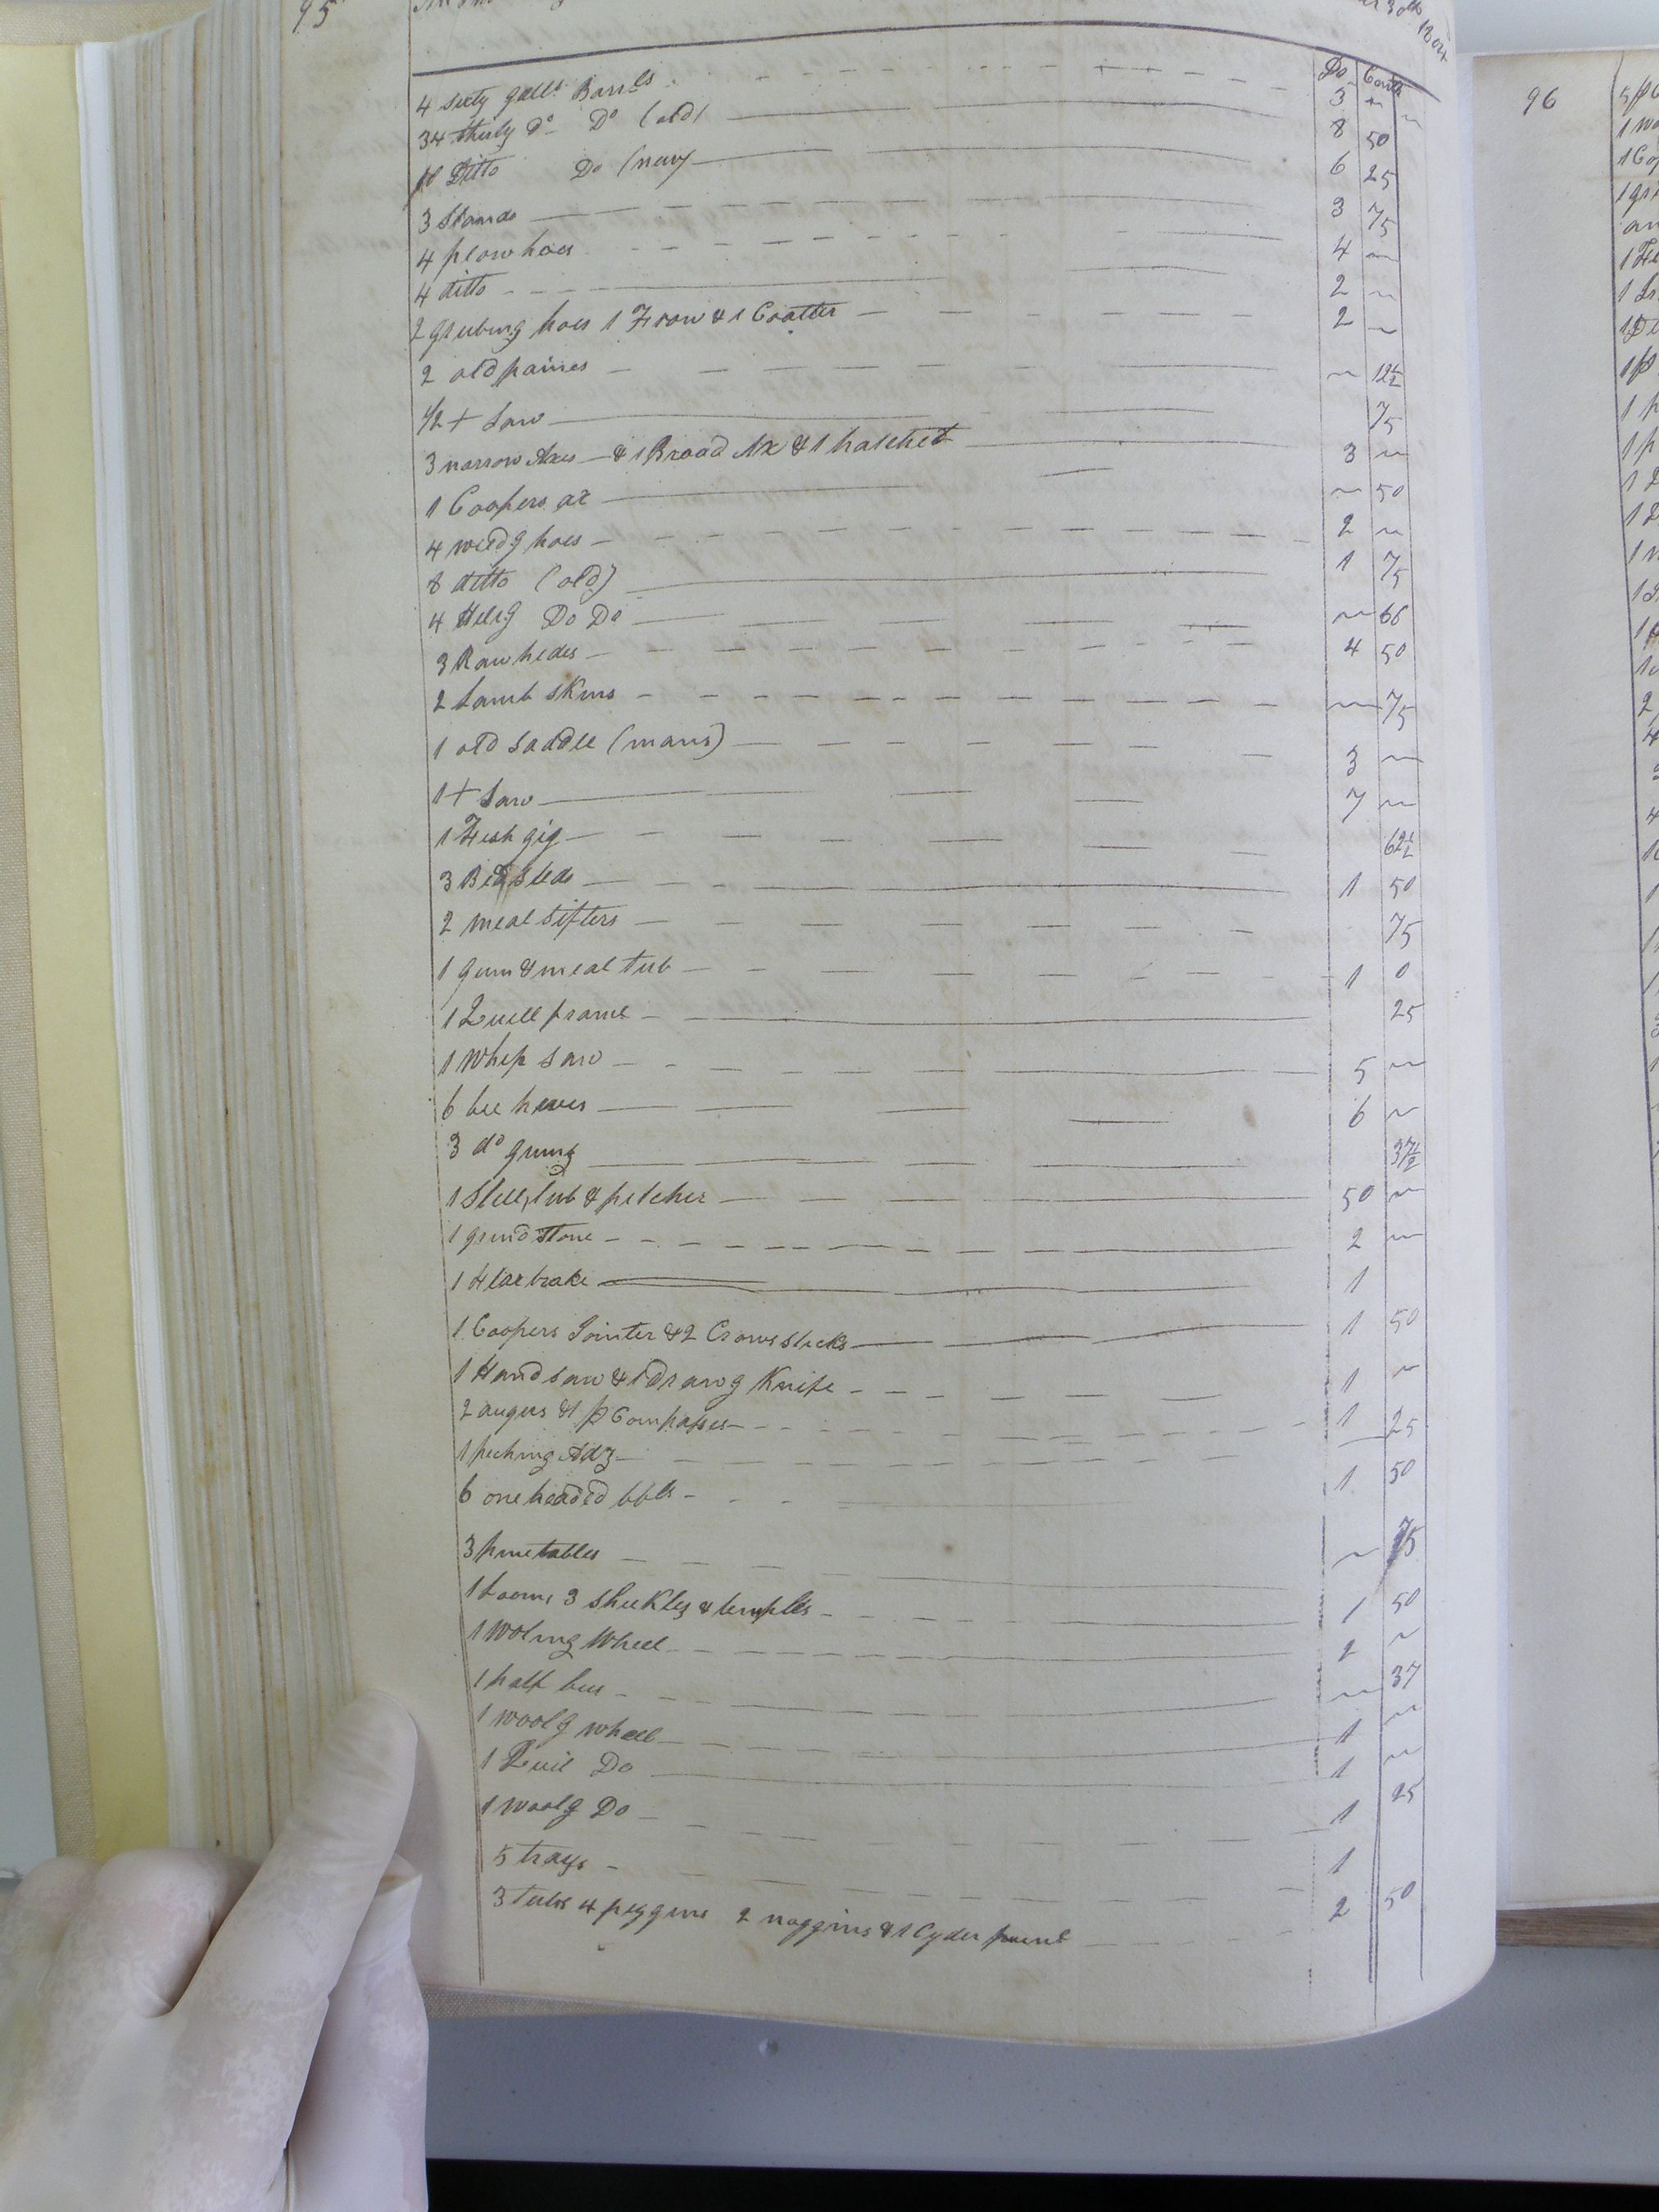 95
30th 1804
Do Cents
4 sixty galls Barrls 3 ~
34 thirty do Do (old) 8 50
10 Ditto Do (new) 6 25
3 Stands 3 75
4 plow hoes 4 ~
4 ditto 2 ~
2 grubing hoes 1 Frow & 1 Coalter 2 ~
2 old ~ 12½
1/2 + Saw 75
3 narrow Axes & 1 Broad Ax & 1 hatchet 3 ~
1 Coopers ax ~ 50
4 weedg hoes 2 ~
8 ditto (old) 1 75
4 Hilig Do Do ~ 66
3 Rawhides 4 50
2 Lamb skins ~ 75
1 old saddle (mans) 3 ~
1 + Saw 7 ~
1 Fish gig 62½
3 Bedsteds 1 50
2 meal sifters 75
1 gum & meal tub 1 0
1 Quill frame 25
1 Whip saw 5 ~
6 bee hives 6 ~
3 do gums 37½
1 Still, tub & pitcher 50 ~
1 grind Stone 2 ~
1 Flax brake 1
1 Coopers Jointer & 2 Crows stocks 1 50
1 Hand saw & 1 Drawg Knife 1 ~
2 augers & 1 p Compasses 1 25
1 pecking Adz
6 one headed bbls 1 50
3 pine tables ~ 75
1 Loom, 3 shickles & temples 1 50
1 Woling Wheel 2 ~
1 half bus ~ 37
1 woolg wheel 1 ~
1 Quil Do 1 ~
1 woolg Do 1 25
5 trays 1
3 tubs 4 piggins 2 noggins & 1 Cyder 2 50
96